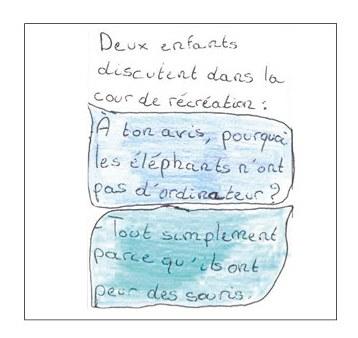 Deux enfants
discutent dans la
cour de récréation :
À ton avis, pourquoi
les éléphants n'ont
pas d'ordinateur ?
- Tout simplement
parce qu'ils ont
peur des souris.